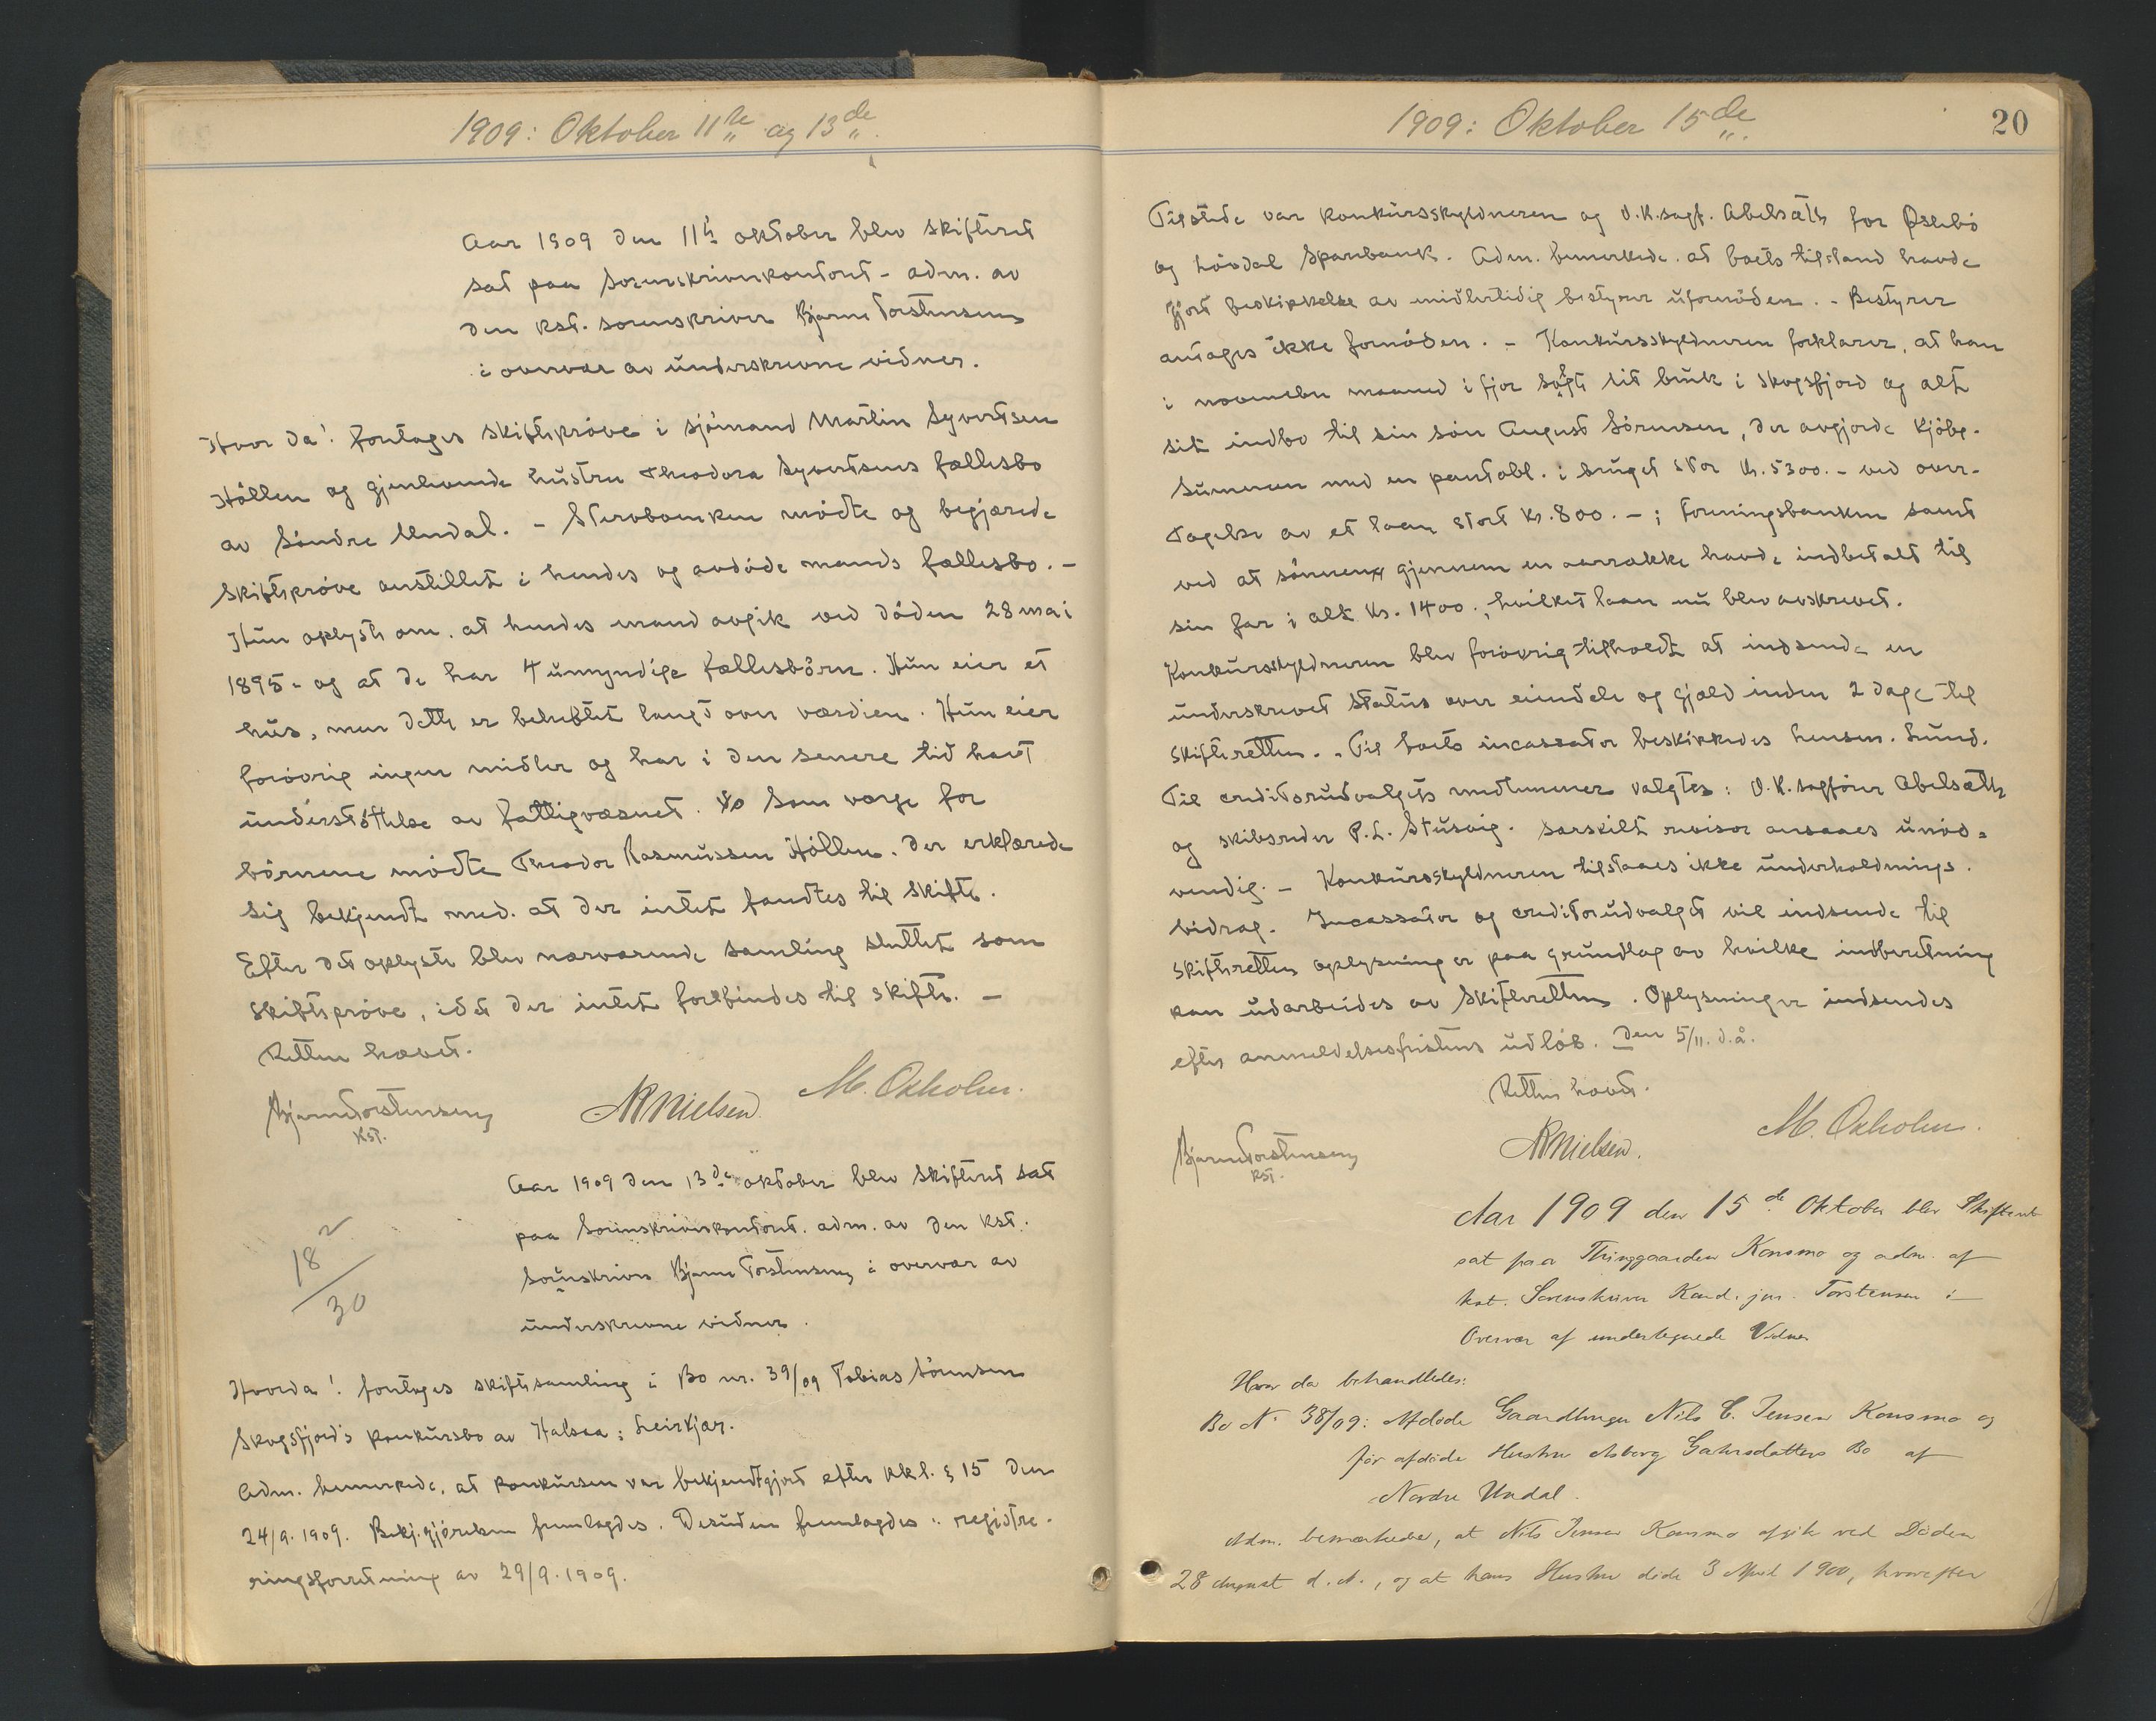 1909: Oktober 11te og 13de
Aar 1909 den 11te oktober blev skifteret
sat paa Sorenskriverkontoret - adm. av
den kst. sorenskriver Bjarne Torstensen
i overvær av underskrevne vidner.
Hvor da! foretages skifteprøve i sjømand Martin Syvertsen
Høllen og gjenlevende hustru Theodora Syvertsens fællesbo
av Søndre Undal. - Stervboenken mødte og begjærede
skifteprøve anstillet i hendes og avdøde mands fællesbo. -
Hun oplyste om, at hendes mand avgik ved døden 28 mai
1895 - og at de har 4 umyndige fællesbørn. Hun eier et
hus, men dette er beheftet langt over værdien. Hun eier
forøvrig ingen midler og har i den senere tid havt
understøttelse av fattigvæsnet. Som værge for
børnene mødte Theodor Rasmussen Høllen, der erklærede
sig bekjendt med, at der intet fandtes til skifte.
Efter det oplyste blev nærværende samling sluttet som
skifteprøve, idet der intet forefindes til skifte. -
Retten hævet.
Bjarne Torstensen
kst.
NRNielsen
M. Oxholm.
Aar 1909 den 13de oktober blev skifteret sat
paa Sorenskriverkontoret. adm. av den kst.
Sorenskriver Bjarne Torstensen i overvær av
underskrevne vidner.
18
30
Hvorda! foretages skiftesamling i Bo nr. 39/09 Tobias Sørensen
Skogsfjord's konkursbo av Halsaa: Leirkjær.
Adm. bemerkede, at konkursen var bekjendtgjort efter kkl. § 15 den
24/9. 1909. Bekj.gjørelsen fremlagdes. Desuden fremlagdes: registre-
ringsforretning av 29/9. 1909.
1909: Oktober 15de
20
Tilstede var konkursskyldneren og O.R.sagf. Abelsæth for Øslebø
og Løvdal Sparebank. Adm. bemerkede, at boets tilstand havde
gjort beskikkelse av midlertidig bestyrer ufornøden. - Bestyrer
antages ikke fornøden. - Konkursskyldneren forklarer, at han
i novembr maaned i fjor solgte sit bruk i Skogsfjord og alt
sit indbo til sin søn August Sørensen, der avgjorde kjøbe-
summen med en pantobl. i bruget stor kr. 5300. - ved over-
tagelse av et laan stort kr. 800. - i Foreningsbanken samt
ved at sønnen gjennem en aarrække havde indbetalt til
sin far i alt kr. 1400., hvilket laan nu blev avskrevet.
Konkursskyldneren blev forøvrig tilholdt at indsende en
underskrevet status over eiendele og gjæld inden 2 dage til
skifteretten. - Til boets incassator beskikkedes lensm. Lund.
Til creditorudvalgets medlemmer valgtes: O.R. sagfører Abelsæth
og skibsreder P.L. Stusvig. Særskilt revisor ansaaes unød-
vendig. - Konkursskyldneren tilstaaes ikke underholdnings-
bidrag. Incassator og creditorudvalget vil indsende til
skifteretten oplysninger paa grundlag av hvilke indberetning
kan udarbeides av Skifteretten. Oplysninger indsendes
efter anmeldelsesfristens udløb. Den 5/11. d.å.
Retten hævet.
Bjarne Torstensen
kst.
NRNielsen.
M. Oxholm.
Aar 1909 den 15de Oktober blev Skifteret
sat paa Thinggaarden Konsmo og adm. af
kst. Sorenskriver Kand. jur. Torstensen i
Overvær af undertegnede Vidner
Hvor da behandledes:
Bo No 38/09: Afdøde Gaardbruger Nils C. Jensen Konsmo og
før afdøde Hustru Asborg Gahrsdatters Bo af
Nordre Undal.
Adm. bemærkede, at Nils Jensen Konsmo afgik ved Døden
28 August d. A., og at hans Hustru døde 3 April 1900, hvorefter